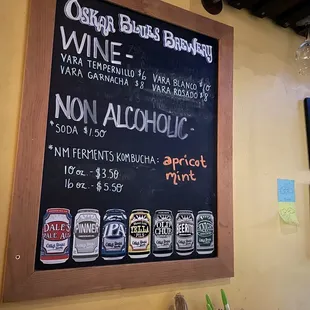 OSKAR BLUES BREWERY
WINE-
VARA TEMPERNILLO $6 VARA BLANCO $10
VARA GARNACHA $8 VARA ROSADO $8
NON ALCOHOLIC-
*SODA $1.50
*NM FERMENTS KOMBUCHA: apricot
mint
10oz - $3.50
16oz - $5.50
DALE'S
PALE ALE
PINNER
IPA
OLD CHUB